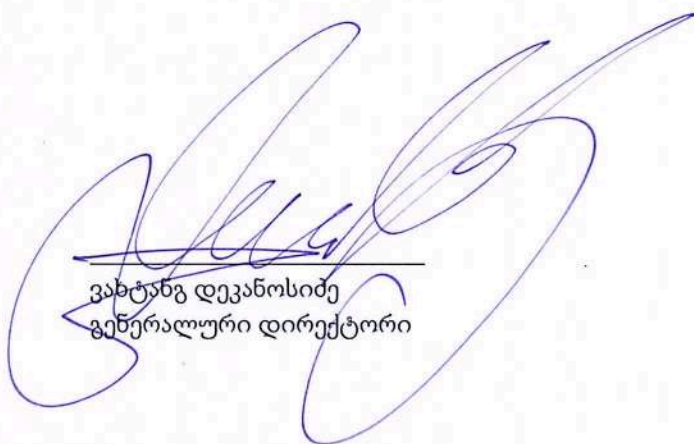 ვახტანგ დეკანოსიძე
გენერალური დირექტორი